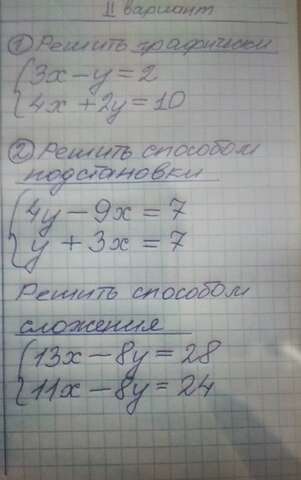 II вариант
① Решить графически
{3x − y = 2
{4x + 2y = 10
② Решить способом
подстановки
{4y − 9x = 7
{y + 3x = 7
Решить способом
сложения
{13x − 8y = 28
{11x − 8y = 24